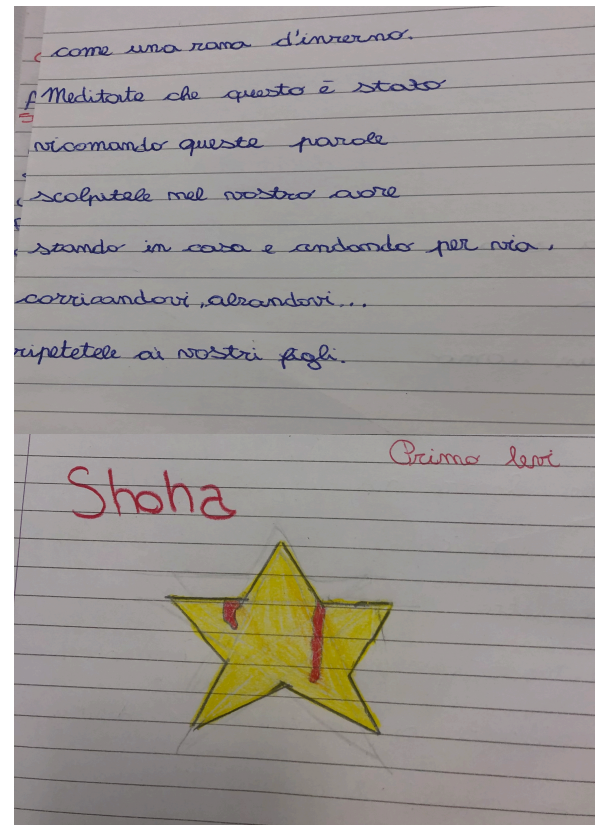 come una rana d'inverno.
Meditate che questo è stato
vicomando queste parole
scolpitele nel vostro cuore
stando in casa e andando per via,
corricandovi, alzandovi...
ripetetele ai vostri figli.
Primo levi
Shoha